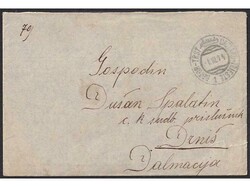 79
Gospodin
Dušan Spalatin
c. k. sudb. pristušnik
Drniš
Dalmacija